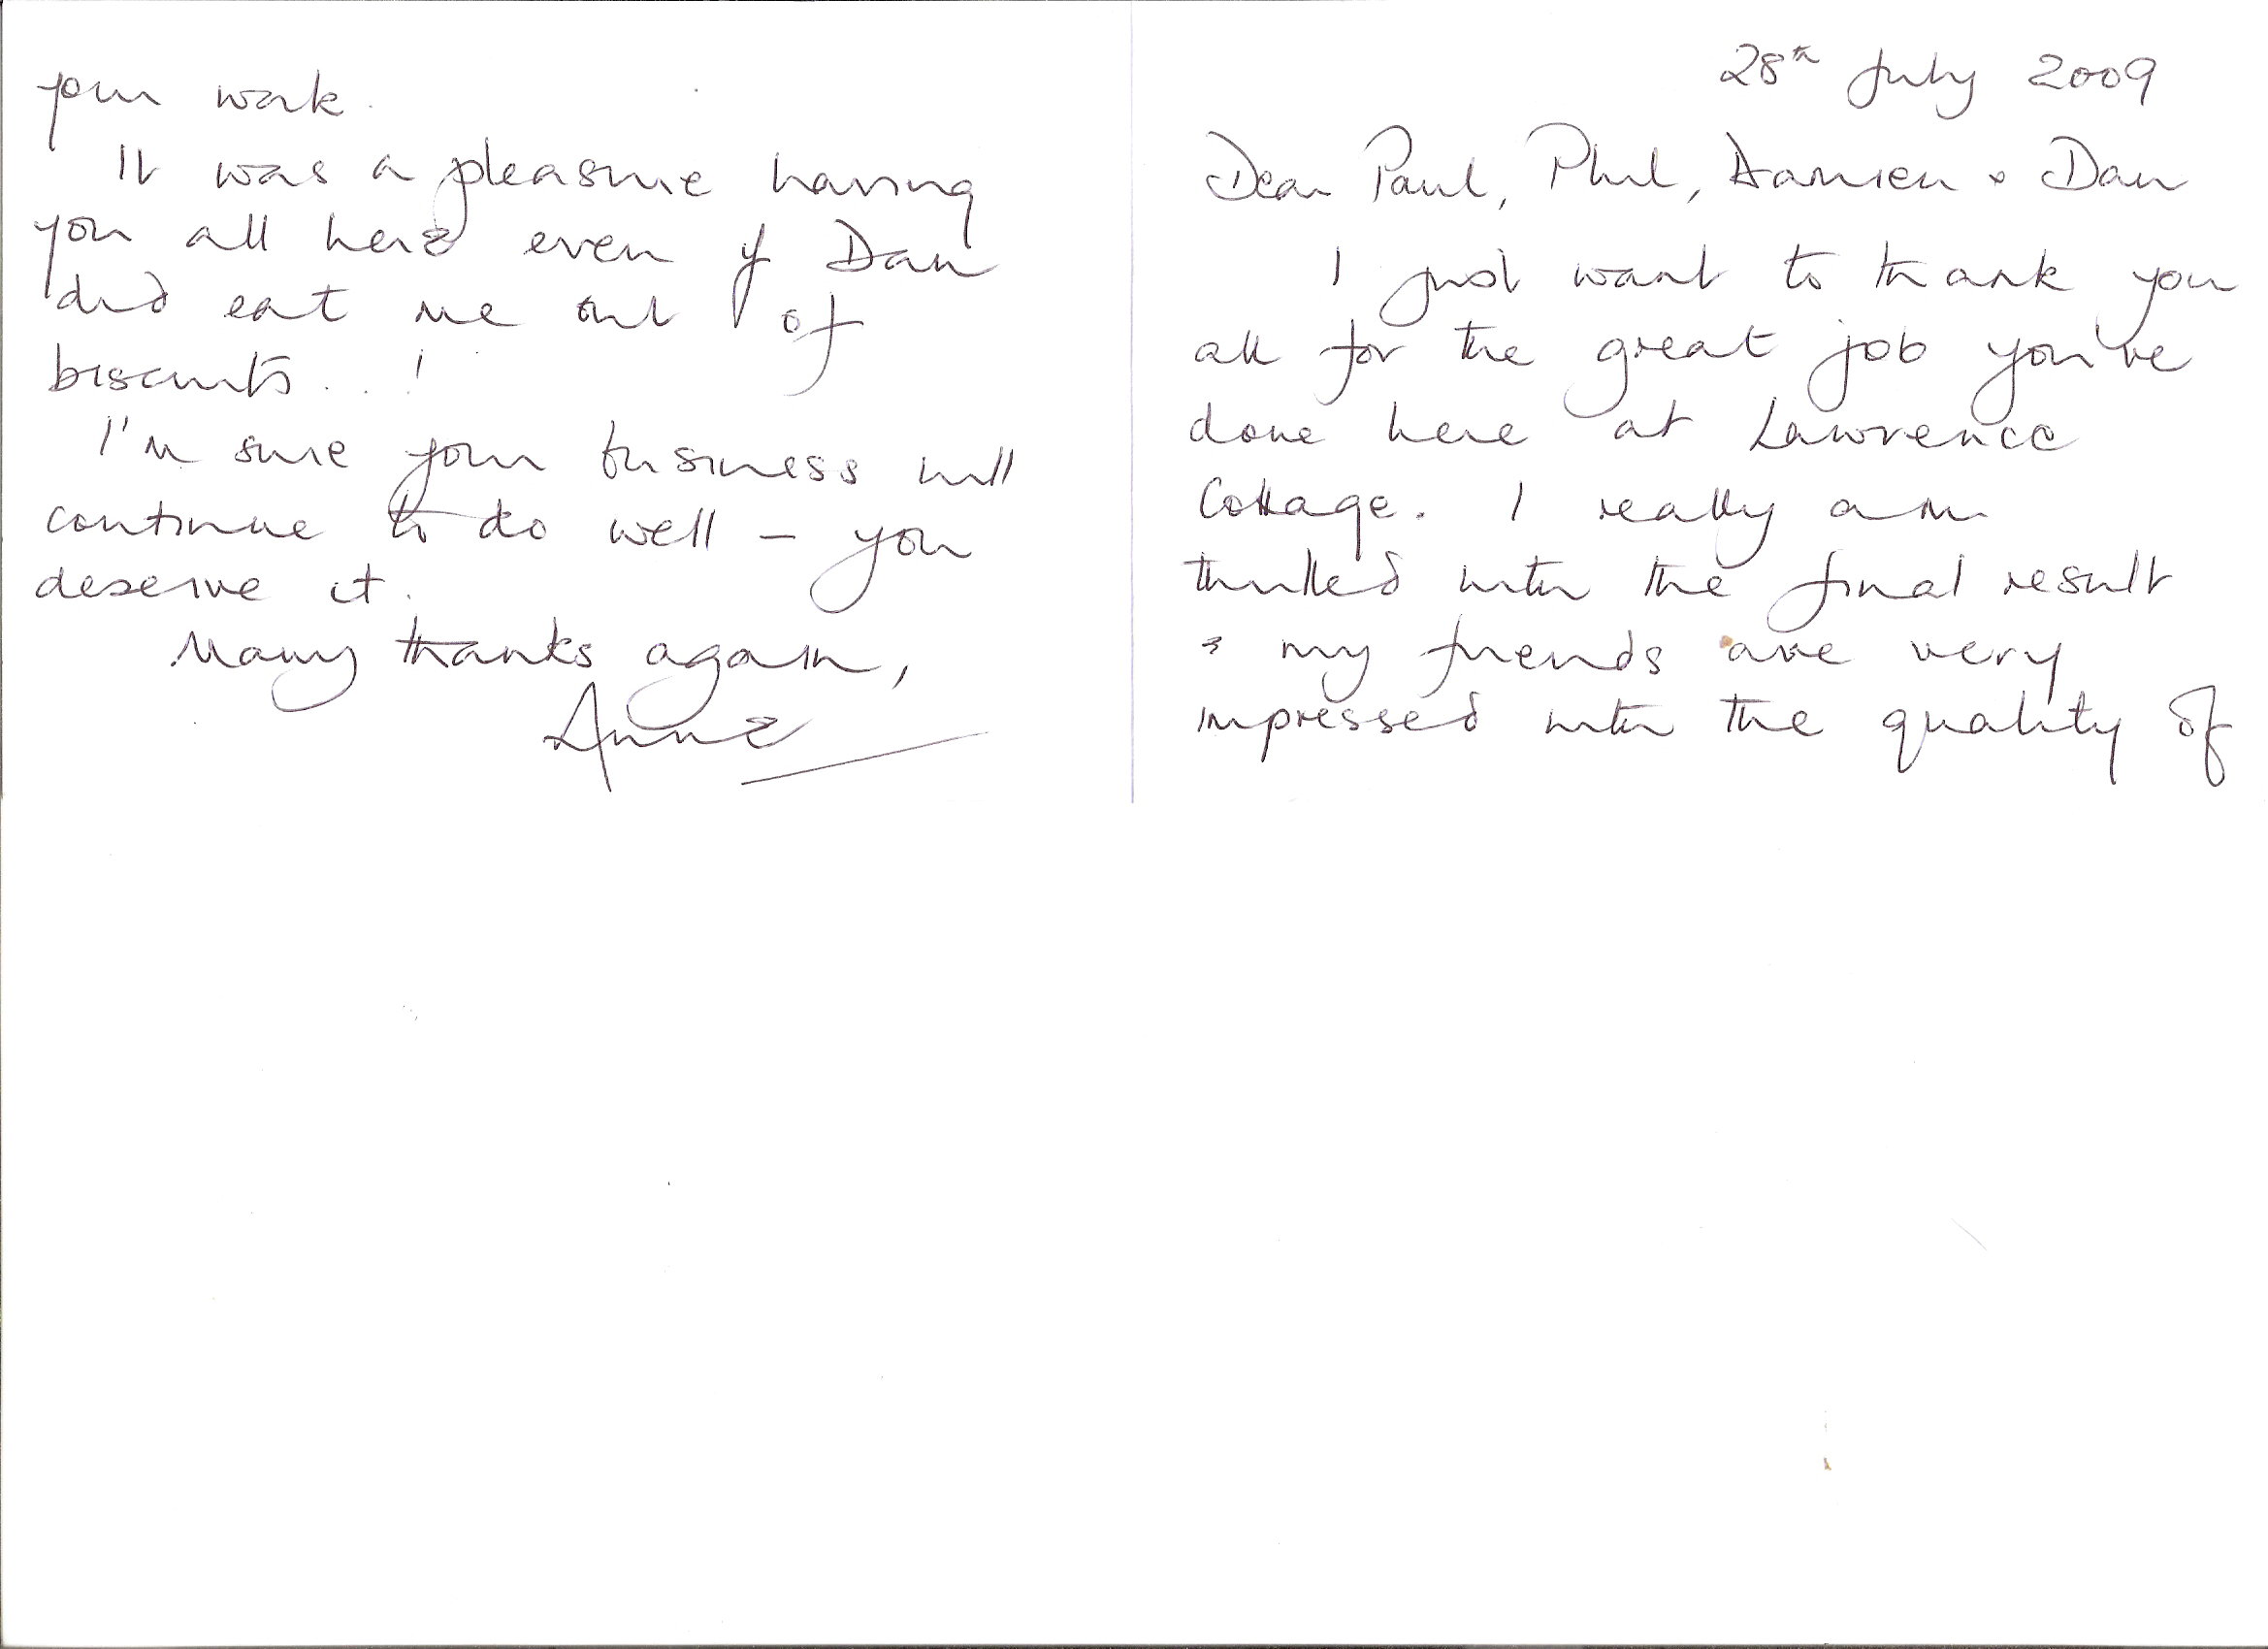 28th July 2009
Dear Paul, Phil, Damien & Dan
I just want to thank you
all for the great job you've
done here at Lawrence
Cottage. I really am
thrilled with the final result
& my friends are very
impressed with the quality of
your work.
It was a pleasure having
you all here even if Dan
did eat me out of
biscuits...!
I'm sure your business will
continue to do well - you
deserve it.
Many thanks again,
Anne